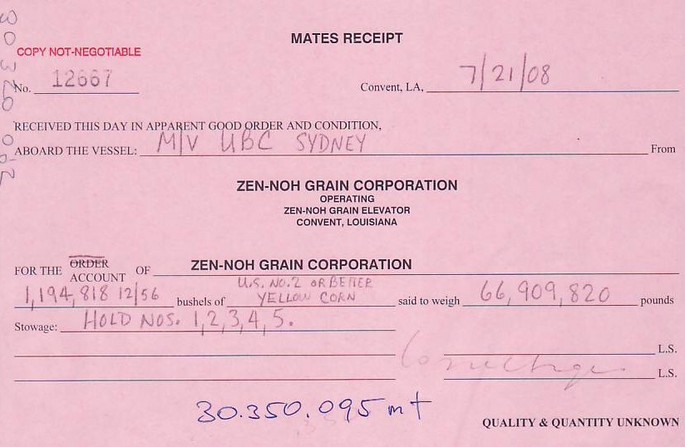 MATES RECEIPT
COPY NOT-NEGOTIABLE
No. 12667
Convent, LA, 7/21/08
RECEIVED THIS DAY IN APPARENT GOOD ORDER AND CONDITION,
ABOARD THE VESSEL: M/V UBC SYDNEY From
ZEN-NOH GRAIN CORPORATION
OPERATING
ZEN-NOH GRAIN ELEVATOR
CONVENT, LOUISIANA
FOR THE ORDER ACCOUNT OF ZEN-NOH GRAIN CORPORATION
1,194,818 12/56 bushels of U.S. NO.2 OR BETTER YELLOW CORN said to weigh 66,909,820 pounds
Stowage: HOLD NOS. 1,2,3,4,5.
L.S.
L.S.
30.350.095 mt
QUALITY & QUANTITY UNKNOWN